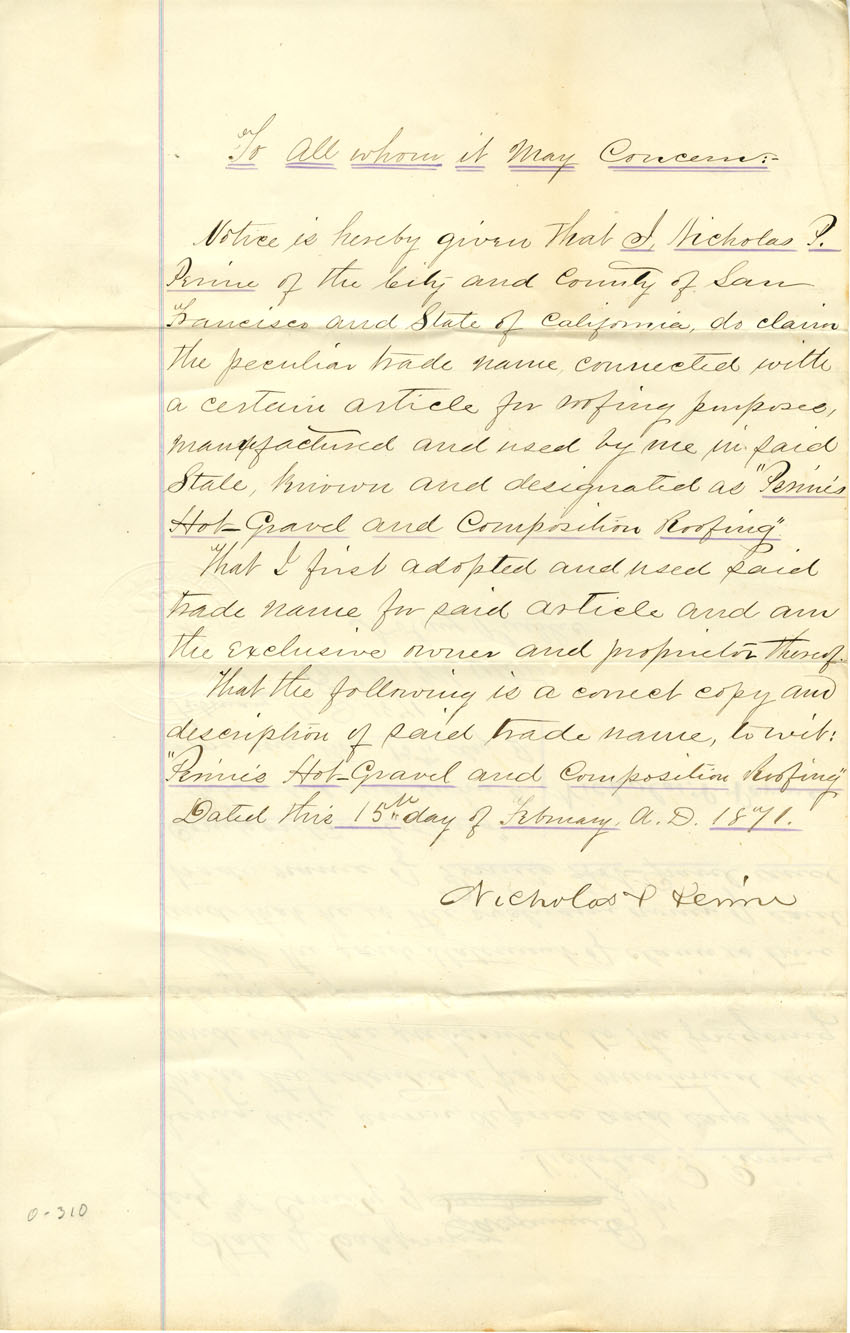 To All whom it May Concern:-
Notice is hereby given that I, Nicholas P.
Perine of the City and County of San
Francisco and State of California, do claim
the peculiar trade name, connected with
a certain article for roofing purposes,
manufactured and used by me in said
State, known and designated as "Perine's
Hot-Gravel and Composition Roofing"
That I first adopted and used said
trade name for said article and am
the exclusive owner and proprietor thereof.
That the following is a correct copy and
description of said trade name, to wit:
"Perine's Hot-Gravel and Composition Roofing"
Dated this 15th day of February, A.D. 1871.
Nicholas P Perine
0-310